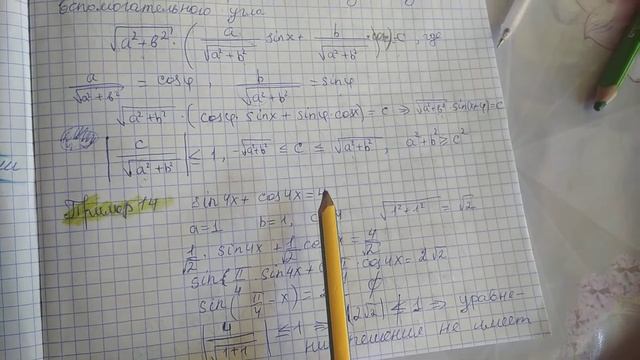 вспомогательного угла
√(a²+b²) · (a/√(a²+b²) sinx + b/√(a²+b²) cosx) = c, где
a/√(a²+b²) = cosφ, b/√(a²+b²) = sinφ
√(a²+b²) · (cosφ · sinx + sinφ · cosx) = c ⇒ √(a²+b²) sin(x+φ) = c
|c/√(a²+b²)| ≤ 1, -√(a²+b²) ≤ c ≤ √(a²+b²), a²+b² ≥ c²
Пример 14 sin4x + cos4x = 4
a=1 b=1, √(1²+1²) = √2
1/√2 · sin4x + 1/√2 co x = 4/√2
sin π/4 sin4x + cos4x = 2√2
sin(π/4 - x) =
|4/√(1+1)| ≤ 1 ⇒ |2√2| ≰ 1 ⇒ уравне-
решения не имеет